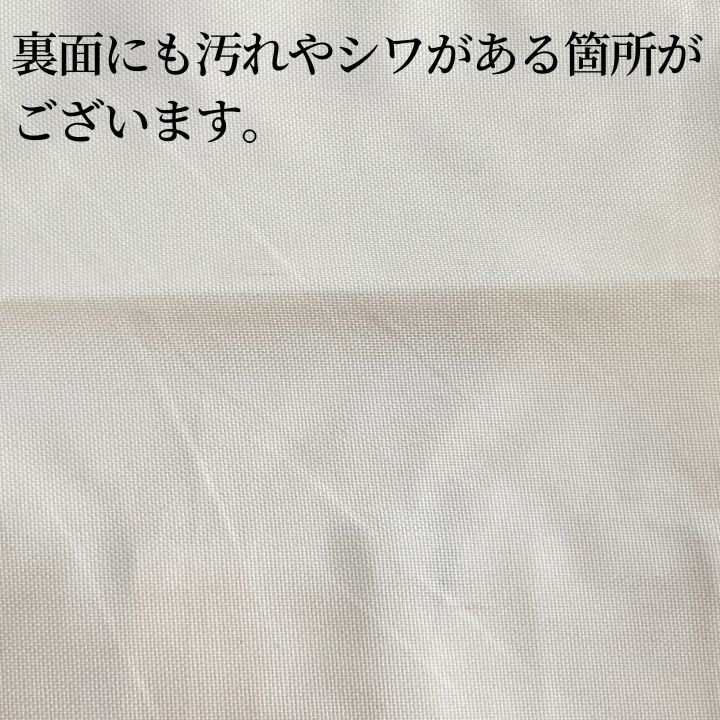 裏面にも汚れやシワがある箇所が
ございます。